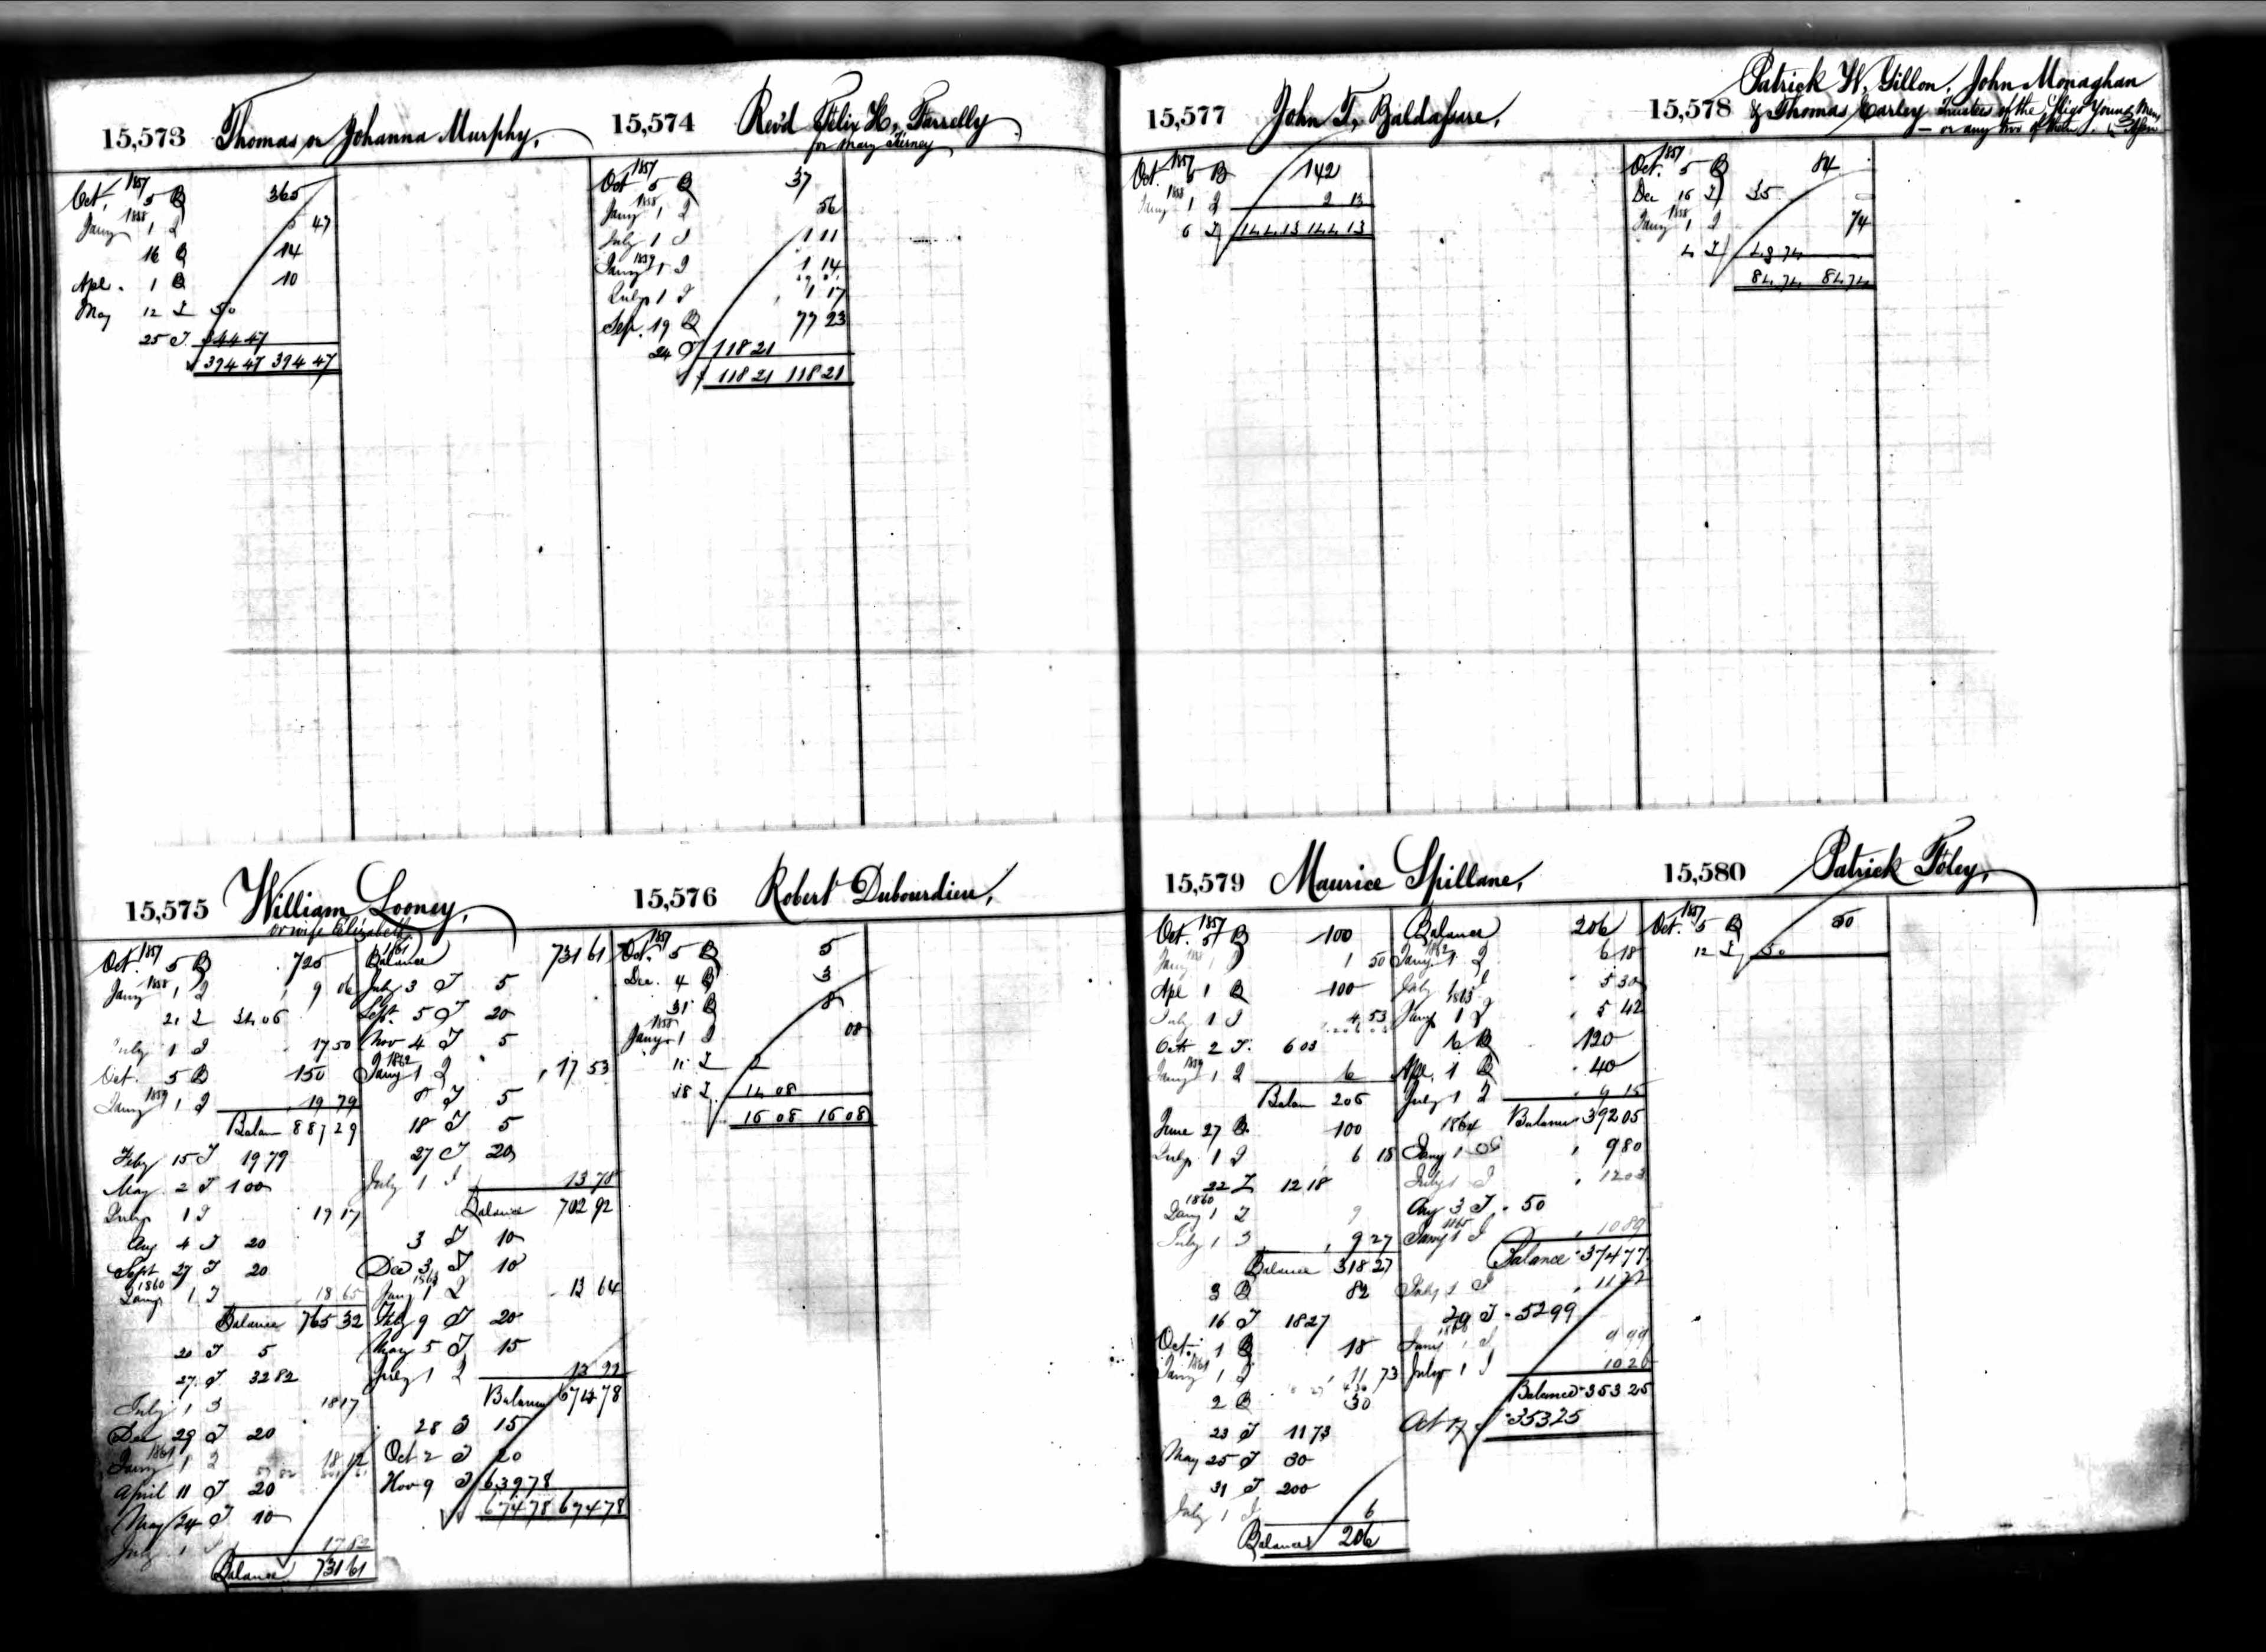 15,573 Thomas or Johanna Murphy,
Oct. 1857 5 B 365
Jany 1858 1 I 5 47
16 B 14
Apl. 1 B 10
May 12 I 50
25 I 344 47
394 47 394 47
15,574 Rev'd Felix H. Farrelly
for Mary Tierney
Oct 1857 5 B 37
Jany 1858 1 I 56
July 1 I 1 11
Jany 1859 1 I 1 14
July 1 I 1 17
Sep. 19 B 77 23
24 I 118 21
118 21 118 21
15,575 William Looney,
or wife Elizabeth
Oct. 1857 5 B 725
Jany 1858 1 I 9 06
21 I 34 06
July 1 I 17 50
Oct. 5 B 150
Jany 1859 1 I 19 79
Balan 887 29
Feby 15 I 19 79
May 2 I 100
July 1 I 19 17
Aug 4 I 20
Sept 27 I 20
1860
Jany 1 I 18 65
Balance 765 32
20 I 5
27 I 32 82
July 1 I 18 17
Dec 29 I 20
Jany 1861 1 I 18 12
April 11 I 20
May 24 I 10
July 1 I 17 82
Balance 731 61
1861
Balance 731 61
July 3 I 5
Sept. 5 I 20
Nov 4 I 5
Jany 1862 1 I 17 53
8 I 5
18 I 5
27 I 20
July 1 I 13 78
Balance 702 92
3 I 10
Dec 3 I 10
Jany 1863 1 I 13 64
Feby 9 I 20
May 5 I 15
July 1 I 13 22
Balance 674 78
28 I 15
Oct 2 I 20
Nov 9 I 639 78
674 78 674 78
15,576 Robert Dubourdieu,
Oct. 1857 5 B 5
Dec. 4 B 3
31 B 8
Jany 1858 1 I 08
11 I 2
18 I 14 08
16 08 16 08
15,577 John T. Baldassare,
Oct. 1857 5 B 142
Jany 1858 1 I 2 13
6 I 144 13 144 13
15,578 Patrick W. Gillon, John Monaghan
& Thomas Carley Trustees of the Sligo Young Men,
— or any two of them.
Oct. 1857 5 B 84
Dec 16 I 35
Jany 1858 1 I 74
4 I 49 74
84 74 84 74
15,579 Maurice Spillane,
Oct. 1857 5 B 100
Jany 1858 1 I 1 50
Apl 1 B 100
July 1 I 4 53
Oct 2 I. 6 03
Jany 1859 1 I 6
Balan 206
June 27 B 100
July 1 I 6 18
22 I 12 18
1860
Jany 1 I 9
July 1 I 9 27
Balance 318 27
3 B 82
16 I 18 27
Oct. 1 B 18
Jany 1861 1 I 11 73
2 B 30
23 I 11 73
May 25 I 30
31 I 200
July 1 I 6
Balance 206
Balance 206
Jany 1862 1 I 6 18
July 1 I 5 30
Jany 1863 1 I 5 42
6 B 120
Apl. 1 B 40
July 1 I 9 15
Balance 392 05
1864
Jany 1 I 9 80
July 1 I 12 03
Aug 3 I 50
Jany 1865 1 I 10 89
Balance 374 77
July 1 I 11 22
29 I 52 99
Jany 1866 1 I 9 99
July 1 I 10 26
Balance 353 25
Oct 17 353 25
15,580 Patrick Foley,
Oct. 1857 5 B 50
12 I 50